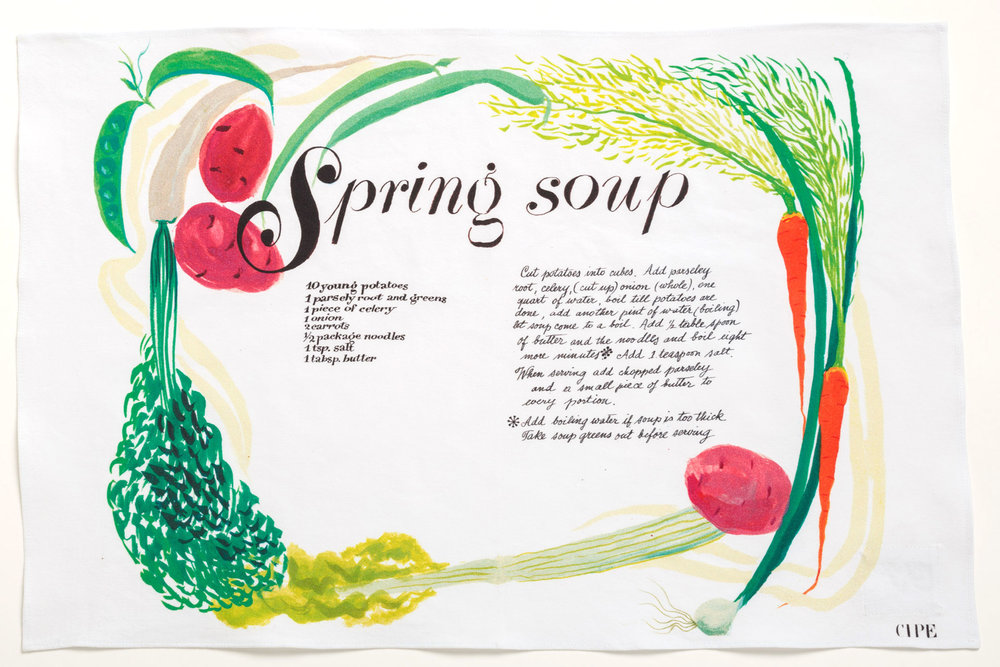 Spring soup
10 young potatoes
1 parsely root and greens
1 piece of celery
1 onion
2 carrots
½ package noodles
1 tsp. salt
1 tabsp. butter
Cut potatoes into cubes. Add parseley
root, celery, (cut up) onion (whole), one
quart of water, boil till potatoes are
done, add another pint of water (boiling)
let soup come to a boil. Add ½ table spoon
of butter and the noodles and boil eight
more minutes* Add 1 teaspoon salt.
When serving add chopped parseley
and a small piece of butter to
every portion.
*Add boiling water if soup is too thick
Take soup greens out before serving
CIPE